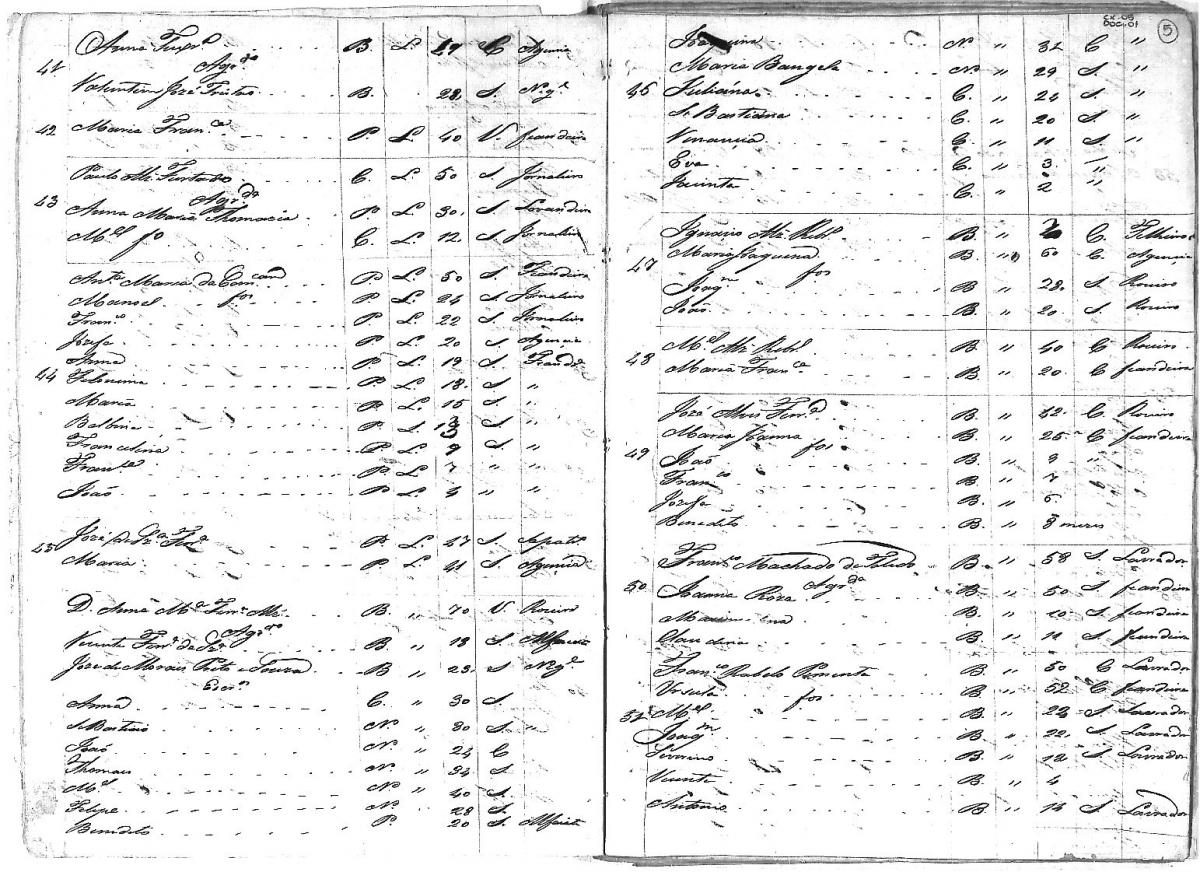 Anna B. L. 29 C Agencia
Agr.do
41 Valentim Jozé Freitas B. 22 S. Neg.e
42 Maria Fran.ca P. L. 40 V. fiandeira
Paulo Mz Furtado C. L. 50 S Jornaleiro
Agr.da
43 Anna Maria Thomazia P. L. 30 S. Lavandeira
M.el fo C. L. 12 S. Jornaleiro
Ant.a Maria da P. L. 50 S. Fiandeira
Manoel fos P. L. 24 S Jornaleiro
Fran.co P L. 22 S Jornaleiro
Jozefa P L. 20 S Agencia
Anna P. L. 19 S. Fiand.a
44 Felesmina P L. 18. S "
Maria P. L. 15 S "
Balbina P. S "
Francelina P L. 9 S "
Fran.ca P L. 7 " "
João P L. 4 " "
45 Jozé P. L. 47 S. Sapat.o
Maria P L. 41 S. Agencia
D. Anna M.a B. " 70 V. Roceiro
Agr.os
Vicente B. " 18 S. Alfaiate
Joze de Morais Preto e Souza B " 23 S Neg.e
Escr.os
Anna C. " 30 S.
S. Bastião N. " 30 S. "
João N. " 24 C
Thomas N " 34 S.
M.el N " 40 S.
Felipe N. 28 S.
Benedito P. 20 S. Alfaiate
CX-05
DOC.01
5
Joaquina N. " 32 C "
Maria Bangela N. " 29 S. "
Juliana C. " 24 S "
S. Bastiana C. " 20 S "
Venancia C. " 11 S "
Eva C. " 3 "
Jacinta C. " 2 "
Ignacio Mz Reb.o B " C.
47 Maria Jaquina B " 60 C. Agencia
fos
Joaq.m B " 28. S Roceiro
João B. " 20 S Roceiro
48 M.el Mz Reb.o B " 40 C Roceiro
Maria Fran.ca B. " 20 C fiandeira
Jozé Alvis B. " 42. C. Roceiro
Maria Joanna B. " 25 C fiandeira
49 João fos B. " 9 "
Fran.co B " 7
Jozefa B. " 6
Benedito B. " 8 mezes
Fran.co Machado de Toledo B. " 58 S Lavrador
Agr.da
50 Joanna Roza B " 50 S. fiandeira
B " 10 S. fiandeira
Claudina B. " 11 S fiandeira
Fran.co Rabelo Pimenta B. " 50 C Lavrador
Ursula fos B " 52 C fiandeira
51 M.el B. " 24 S Lavrador
Joaq.m B. " 22. S Lavrador
Severino B. " 12 S Lavrador
Vicente B " 4
Antonio B. " 14 S Lavrador